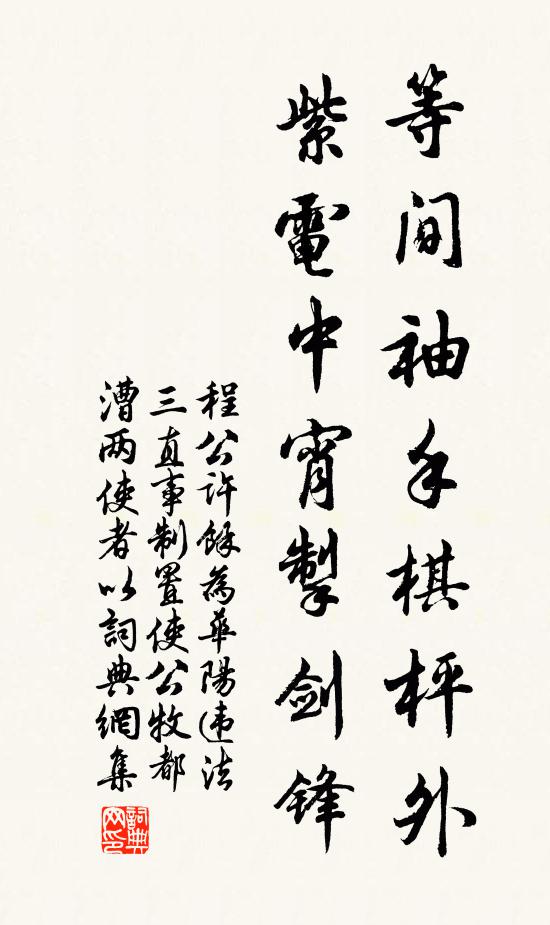 等间袖手棋枰外
紫電中宵掣剑锋
程公许餘為華陽违法
三直事制置使公牧都
漕两使者以詞典網集
詞典网印